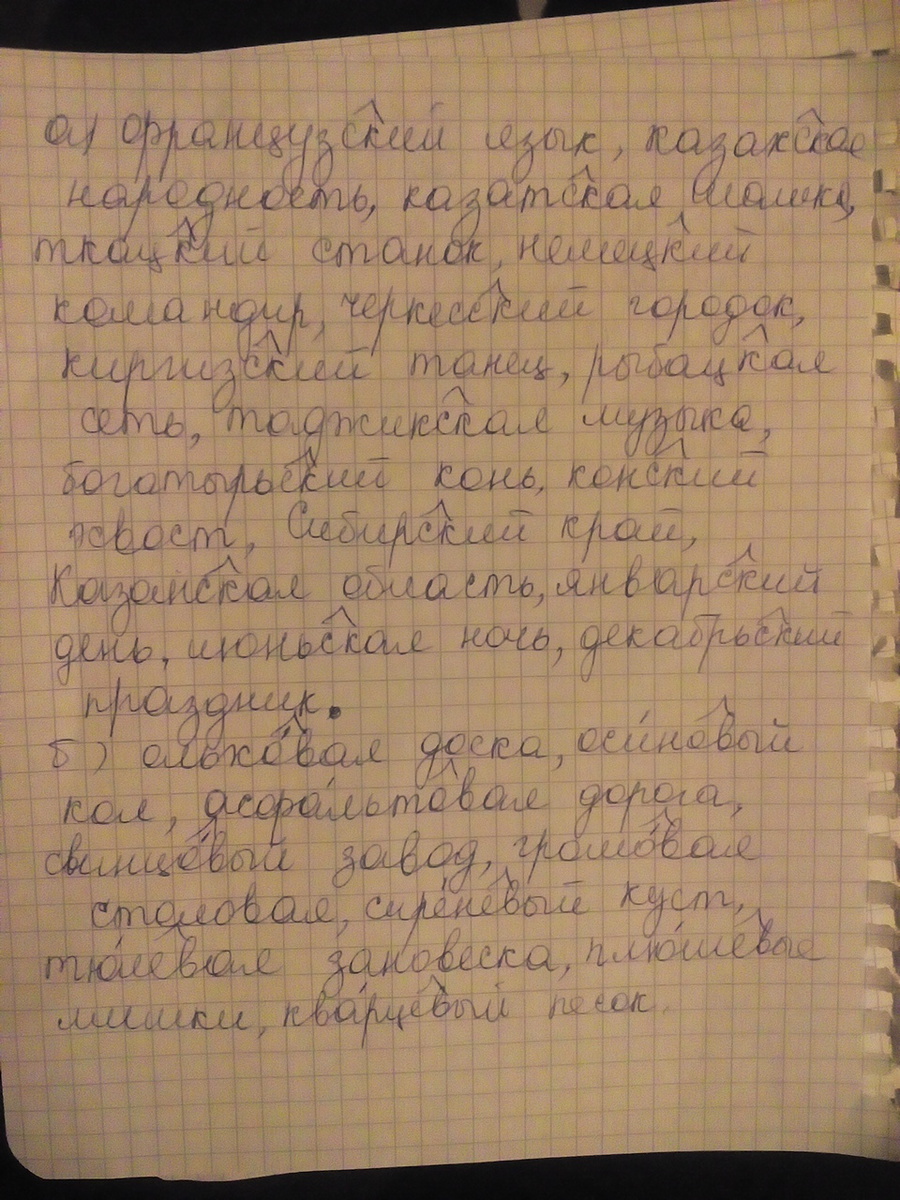 а) французский язык, казахская
народность, казатская шашка,
ткацкий станок, немецкий
командир, черкесский городок,
киргизский танец, рыбацкая
сеть, таджикская музыка,
богатырьский конь, конский
хвост, Сибирский край,
Казанская область, январский
день, июньская ночь, декабрьский
праздник.
б) ольхо́вая доска, оси́новый
кол, асфа́льтовая дорога,
свинцо́вый завод, громо́вая
столовая, сире́невый куст,
тю́левая зановеска, плю́шевые
мишки, ква́рцевый песок.